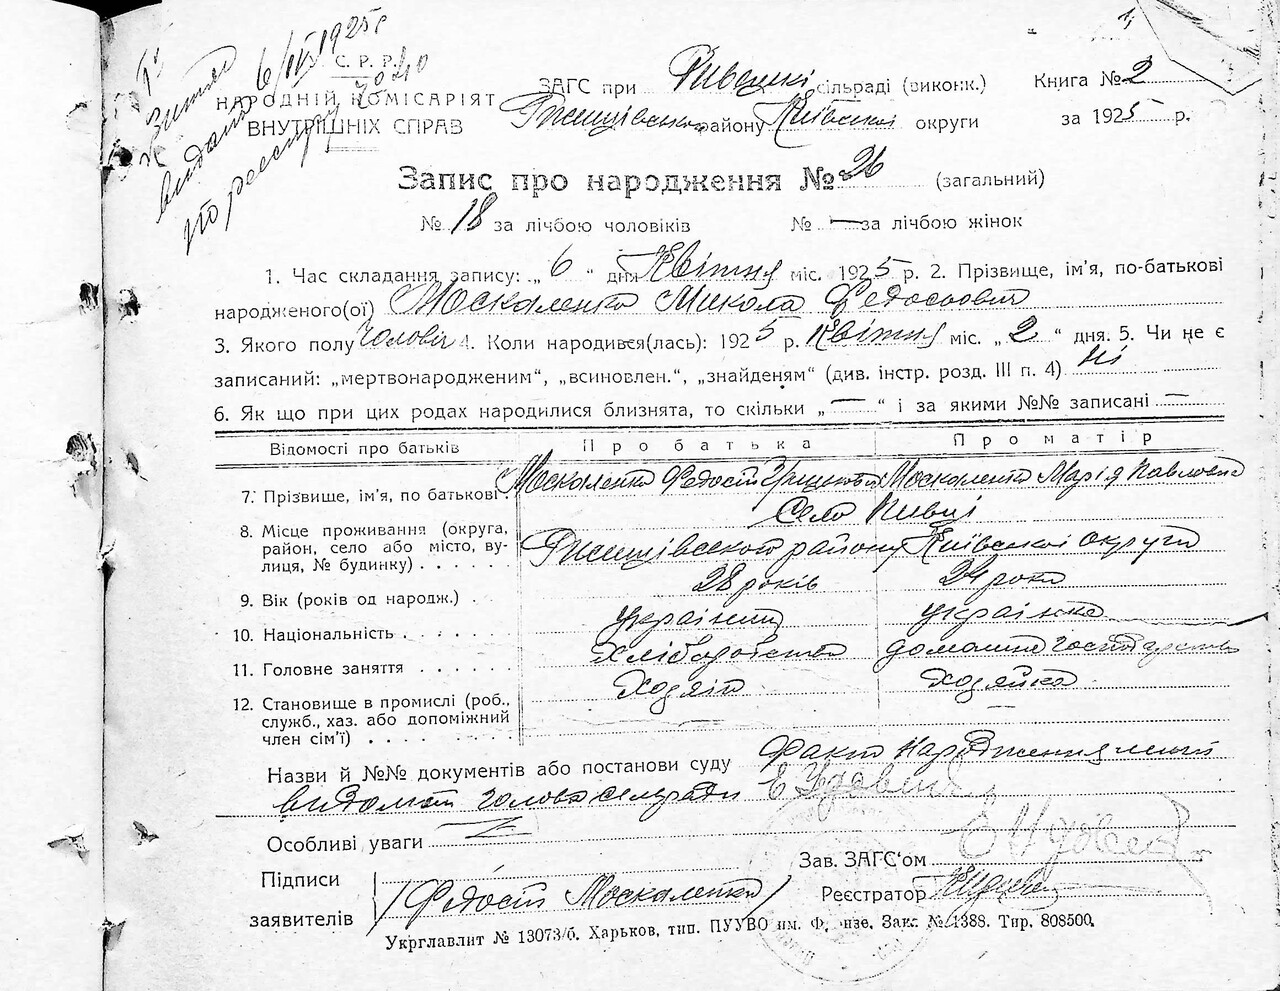 Витяг
видано 6/IV 1925 р
по реєстру № 40
У. С. Р. Р.
НАРОДНІЙ КОМІСАРІЯТ
ВНУТРІШНІХ СПРАВ
ЗАГС при Пивецкі сільраді (виконк.)
Ржищівськ району Київської округи
Книга № 2
за 1925 р.
Запис про народження № 26 (загальний)
№ 18 за лічбою чоловіків № — за лічбою жінок
1. Час складання запису: „ 6 “ дня Квітня міс. 1925 р. 2. Прізвище, ім'я, по-батькові
народженого(ої) Москаленко Микола Федосович
3. Якого полу Чоловіч 4. Коли народився(лась): 1925 р. Квітня міс. „ 2 “ дня. 5. Чи не є
записаний: „мертвонародженим“, „всиновлен.“, „знайденям“ (див. інстр. розд. III п. 4) Ні
6. Як що при цих родах народилися близнята, то скільки „ — “ і за якими №№ записані —
Відомості про батьків Про батька Про матір
7. Прізвище, ім'я, по батькові. Москаленко Федосій Грицьков Москаленко Марія Павловна
8. Місце проживання (округа, район, село або місто, вулиця, № будинку) Село Пивці
Ржищівського району Київської округи
9. Вік (років од народж.) 28 років 24 роки
10. Національність українець українка
11. Головне заняття Хліборобство домашнє господарство
12. Становище в промислі (роб., служб., хаз. або допоміжний член сім'ї) Хозяїн Хозяйка
Назви й №№ документів або постанови суду Факт народження мені
відомий голова сільради
Особливі уваги
Зав. ЗАГС'ом
Підписи
заявителів Федосій Москаленко
Реєстратор
Укрглавлит № 13073/б. Харьков, тип. ПУУВО им. Фрунзе. Зак. № 1388. Тир. 808500.